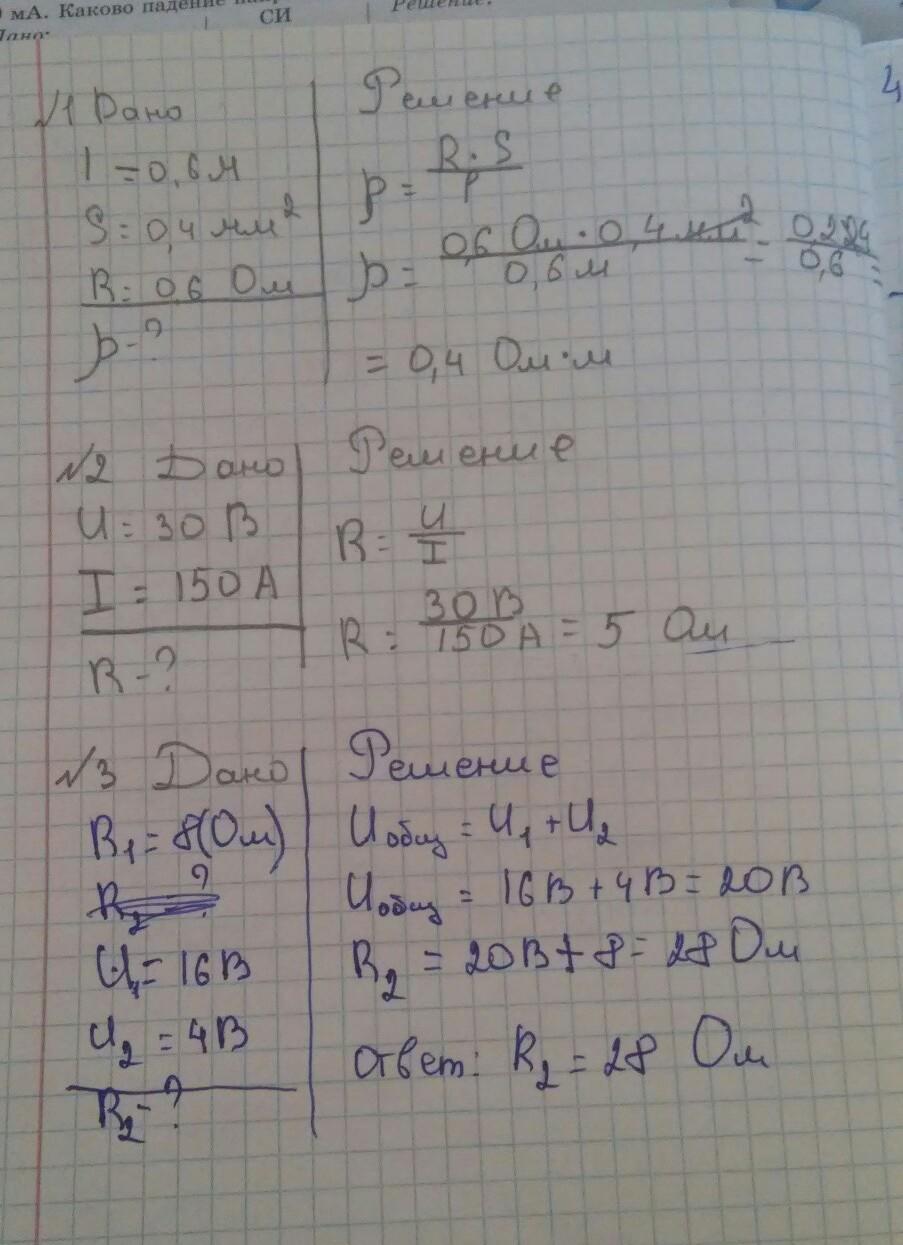 мА. Каково падение
СИ
Решение:
Дано:
4
№1 Дано
l = 0,6 м
S = 0,4 мм²
R = 0,6 Ом
ρ - ?
Решение
ρ = R · S / l
ρ = 0,6 Ом · 0,4 мм² / 0,6 м = 0,24 / 0,6 =
= 0,4 Ом · м
№2 Дано
U = 30 В
I = 150 А
R - ?
Решение
R = U / I
R = 30 В / 150 А = 5 Ом
№3 Дано
R₁ = 8(Ом)
R₂ ?
U₁ = 16 В
U₂ = 4 В
R₂ - ?
Решение
Uобщ = U₁ + U₂
Uобщ = 16 В + 4 В = 20 В
R₂ = 20 В + 8 = 28 Ом
Ответ: R₂ = 28 Ом